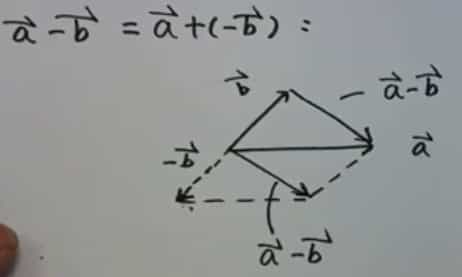 $\vec{a} - \vec{b} = \vec{a} + (-\vec{b})$ :
$\vec{b}$
$\vec{a} - \vec{b}$
$\vec{a}$
$-\vec{b}$
$\vec{a} - \vec{b}$